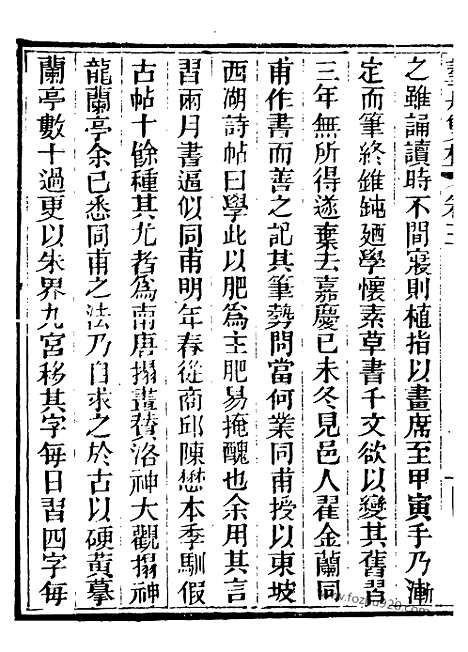 之雖誦讀時不間寢則植指以畫席至甲寅手乃漸
定而筆終錐鈍廼學懷素草書千文欲以變其舊習
三年無所得遂棄去嘉慶己未冬見邑人翟金蘭同
甫作書而善之記其筆勢問當何業同甫授以東坡
西湖詩帖曰學此以肥爲主肥易掩醜也余用其言
習兩月書逼似同甫明年春從商邱陳懋本季馴假
古帖十餘種其尤者爲南唐搨畫贊洛神大觀搨神
龍蘭亭余已悉同甫之法乃自求之於古以硬黃摹
蘭亭數十過更以朱界九宮移其字每日習四字每
www.fozhu920.com